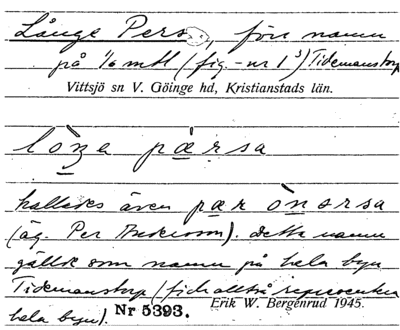 Långe Pers, förr namn
på 1/6 mtl (fig.-nr 1³) Tidemanstorp
Vittsjö sn V. Göinge hd, Kristianstads län.
lòŋa pærsa
kallades även pær ònərsa
(äg. Per Andersson). Detta namn
gällde som namn på hela byn
Tidemanstorp (fick alltså representera
hela byn).
Nr 5393.
Erik W. Bergenrud 1945.